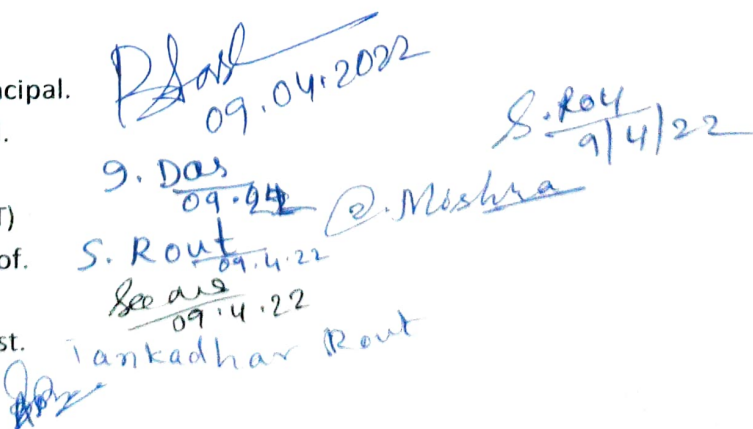 cipal.
09.04.2022
S. Roy
9/4/22
.
g. Das
09.04
T)
@. Mishra
of.
S. Rout
09.4.22
09.4.22
st.
Tankadhar Rout